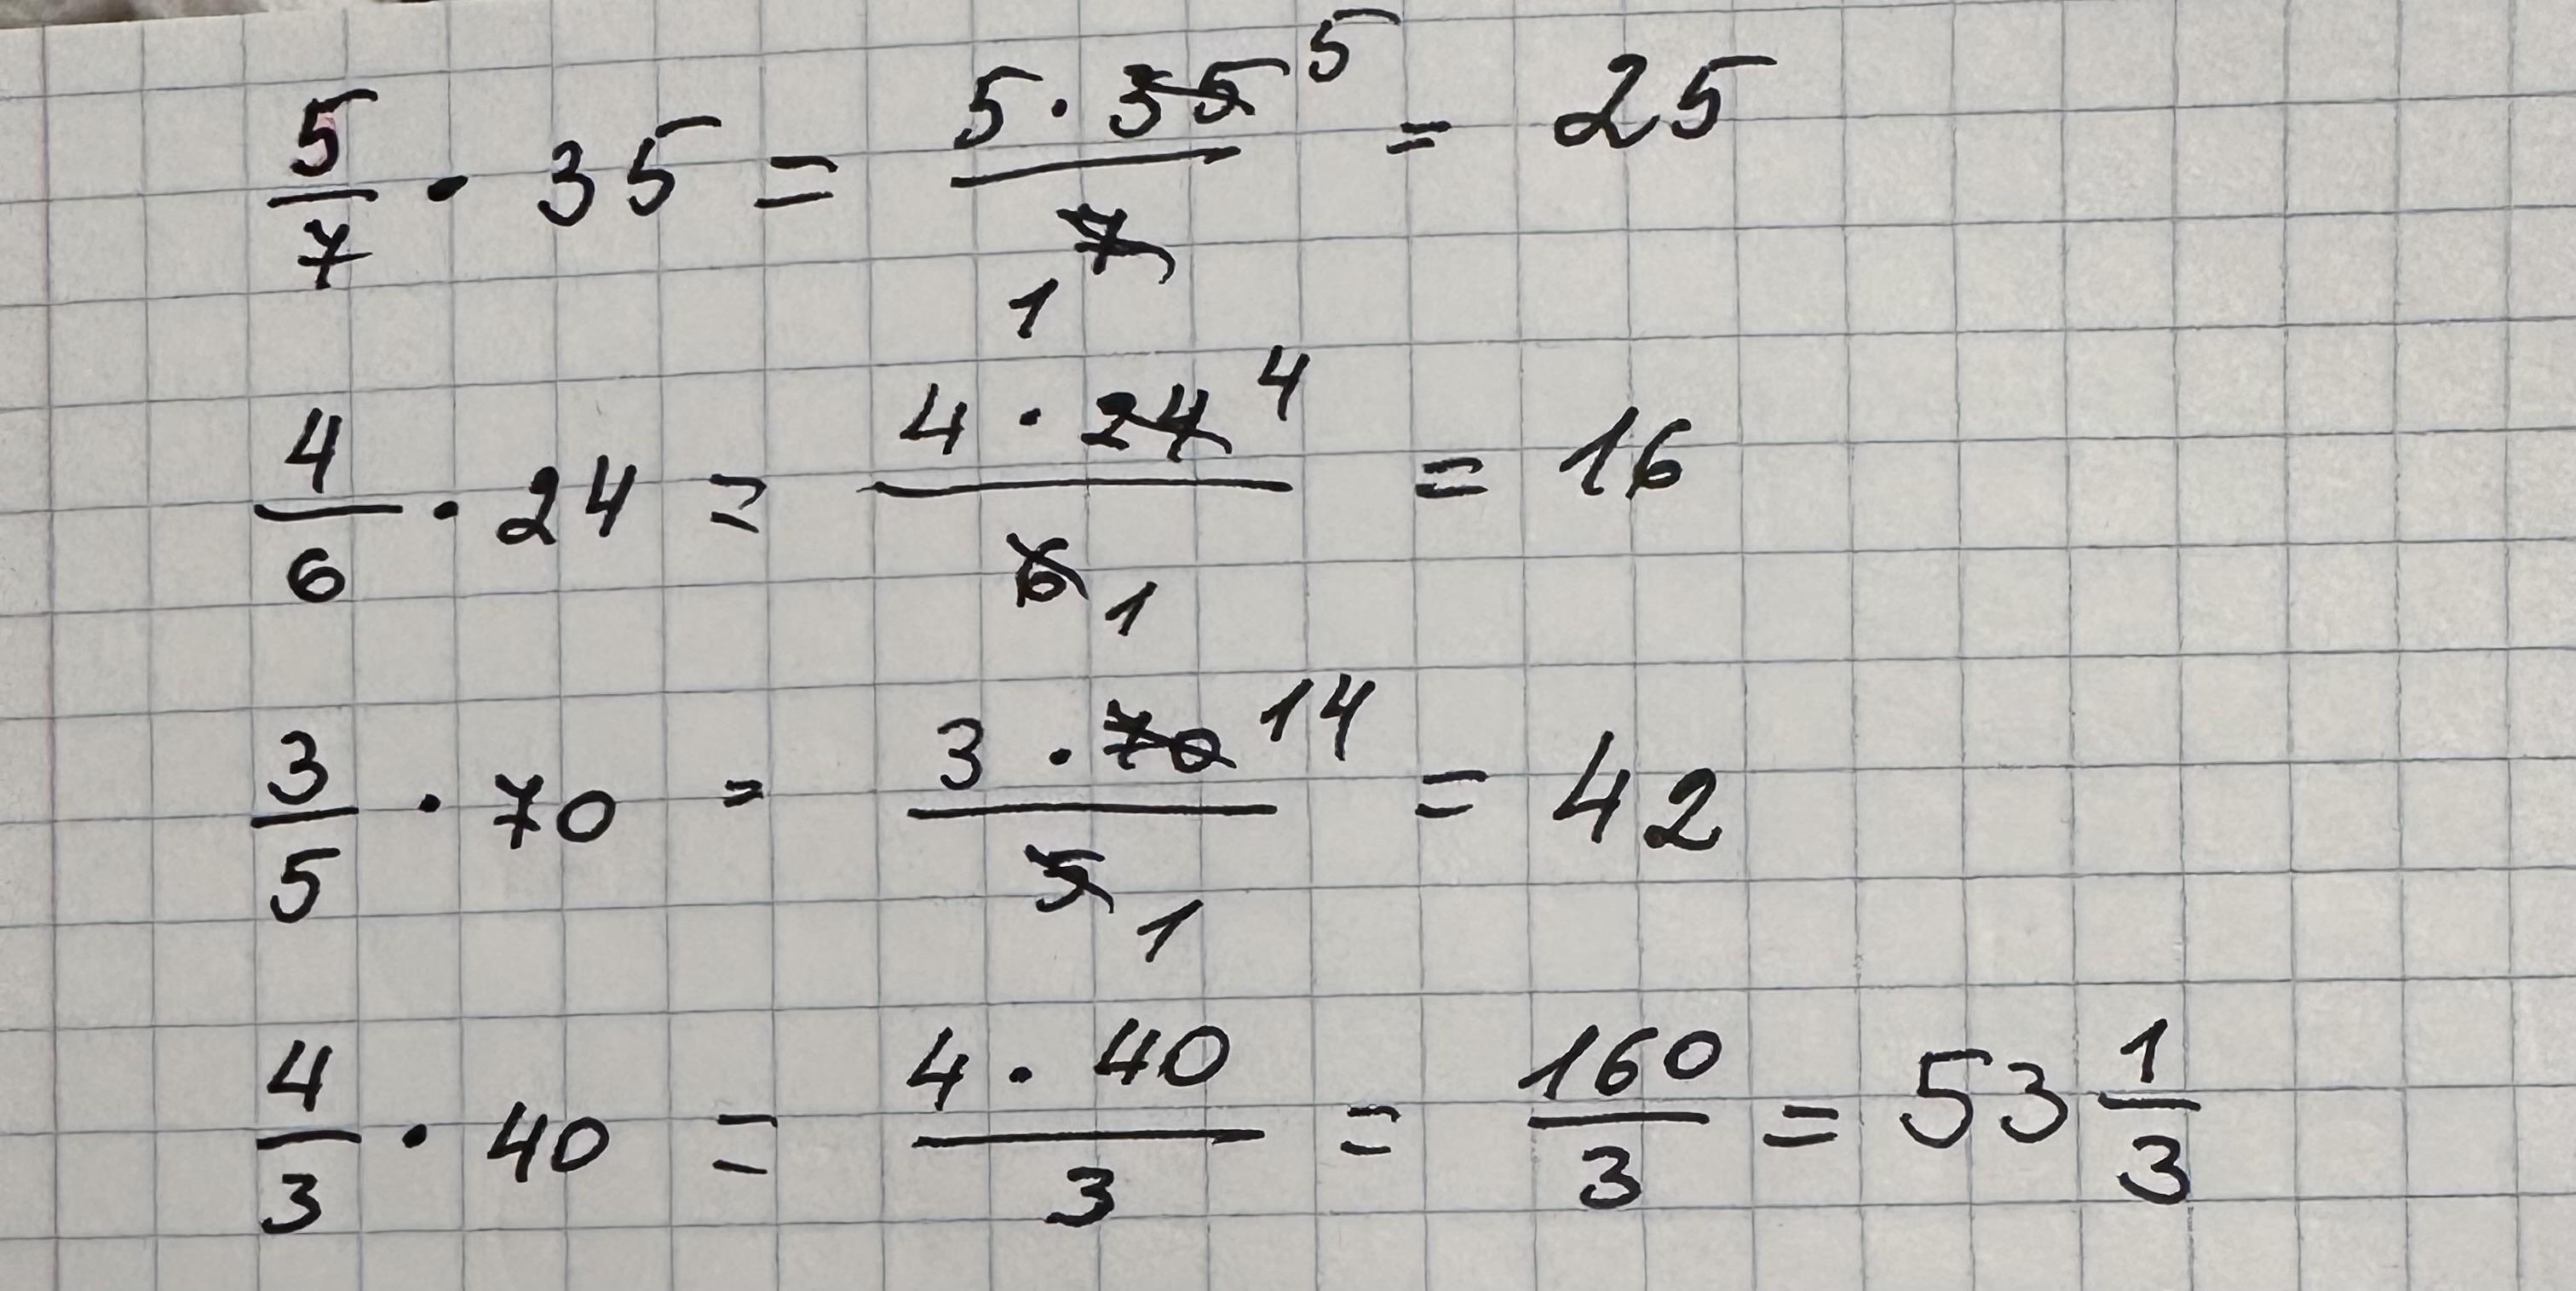 5/7 · 35 = 5 · 35 5 / 7 1 = 25
4/6 · 24 = 4 · 24 4 / 6 1 = 16
3/5 · 70 = 3 · 70 14 / 5 1 = 42
4/3 · 40 = 4 · 40 / 3 = 160/3 = 53 1/3